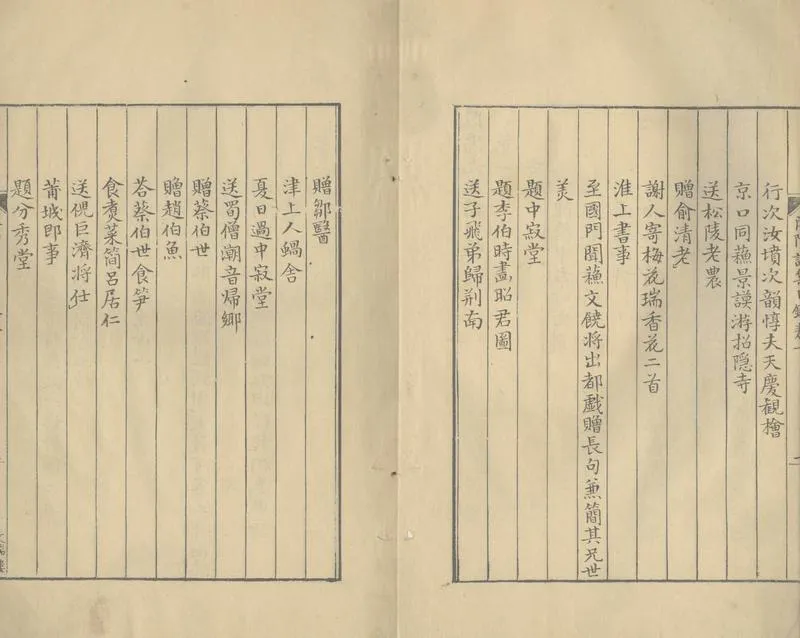 行次汝墳次韻惇夫天慶観檜
京口同蘓景謨游招隠寺
送松陵老農
贈俞清老
謝人寄梅花瑞香花二首
淮上書事
至國門聞蘓文饒将出都戲贈長句兼簡其兄世
美
題中寂堂
題李伯時畫昭君圖
送子飛弟歸荆南
贈鄒醫
津上人蝸舍
夏日過中寂堂
送蜀僧潮音歸鄉
贈蔡伯世
贈趙伯魚
荅蔡伯世食笋
食煑菜簡呂居仁
送倪巨濟将仕
莆城即事
題分秀堂